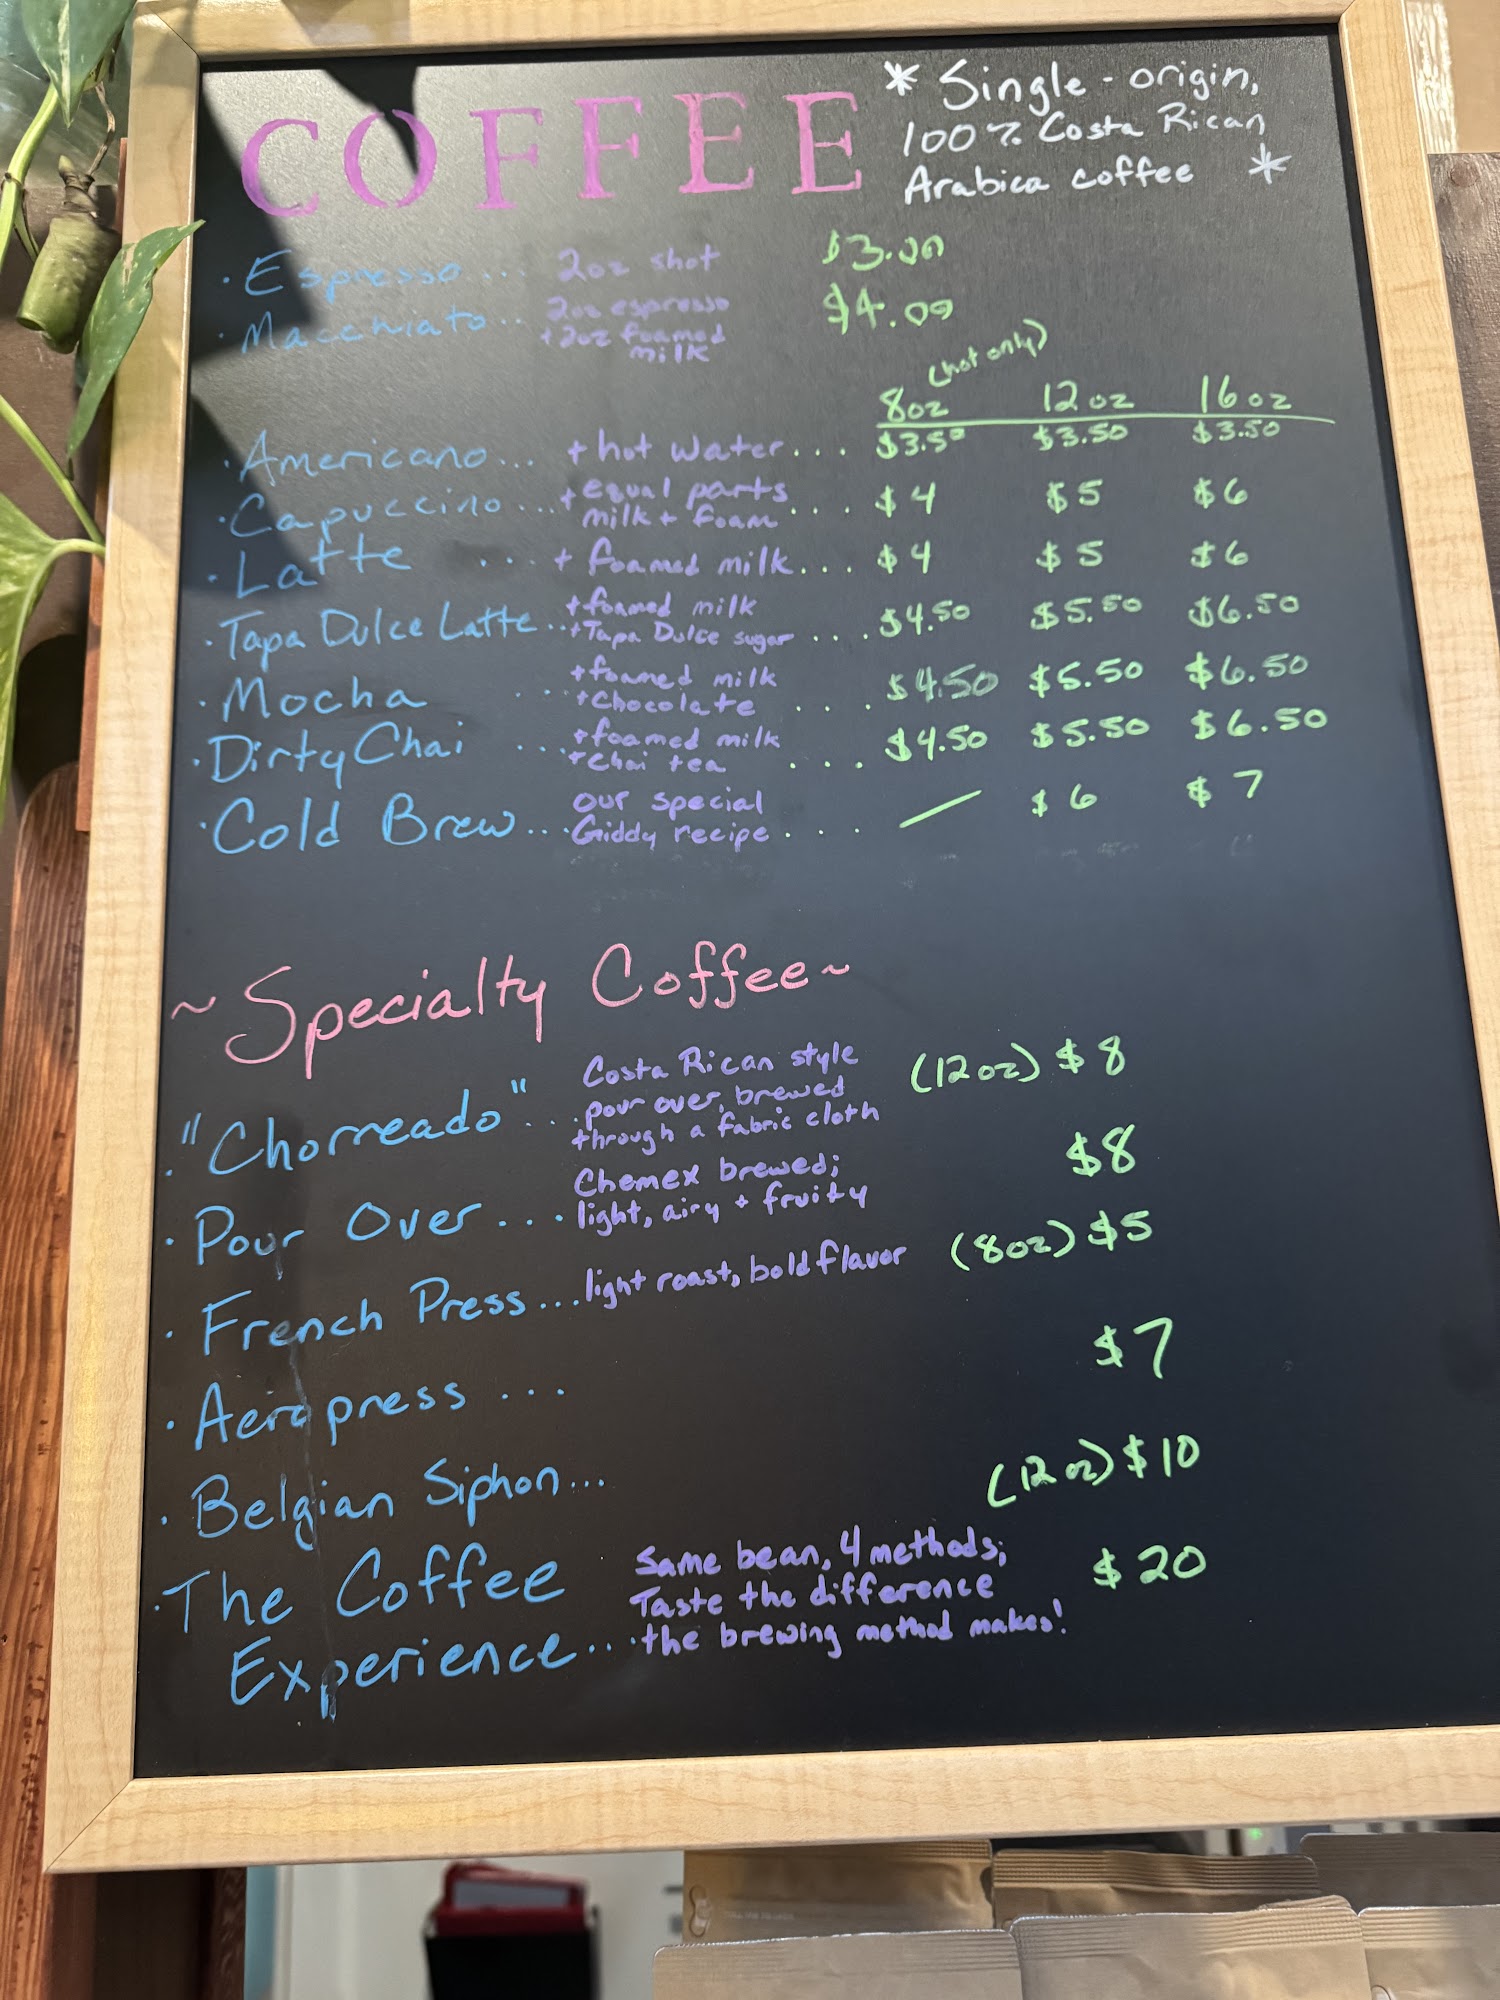 COFFEE
* Single-origin,
100% Costa Rican
Arabica coffee *
· Espresso... 2oz shot $3.00
· Macchiato.. 2oz espresso $4.00
+2oz foamed
milk
(hot only)
8oz 12oz 16oz
· Americano... + hot water... $3.50 $3.50 $3.50
· Capuccino... + equal parts
milk + foam ... $4 $5 $6
· Latte ... + foamed milk... $4 $5 $6
· Tapa Dulce Latte... +foamed milk
+Tapa Dulce sugar .... $4.50 $5.50 $6.50
· Mocha ... +foamed milk
+chocolate .... $4.50 $5.50 $6.50
· Dirty Chai ... +foamed milk
+chai tea .... $4.50 $5.50 $6.50
· Cold Brew... our special
Giddy recipe.... — $6 $7
~Specialty Coffee~
· "Chorreado"... Costa Rican style
pour over, brewed
through a fabric cloth (12oz) $8
· Pour Over... Chemex brewed;
light, airy + fruity $8
· French Press... light roast, bold flavor (8oz) $5
· Aeropress ... $7
· Belgian Siphon... (12oz) $10
· The Coffee
Experience... Same bean, 4 methods;
Taste the difference
the brewing method makes! $20